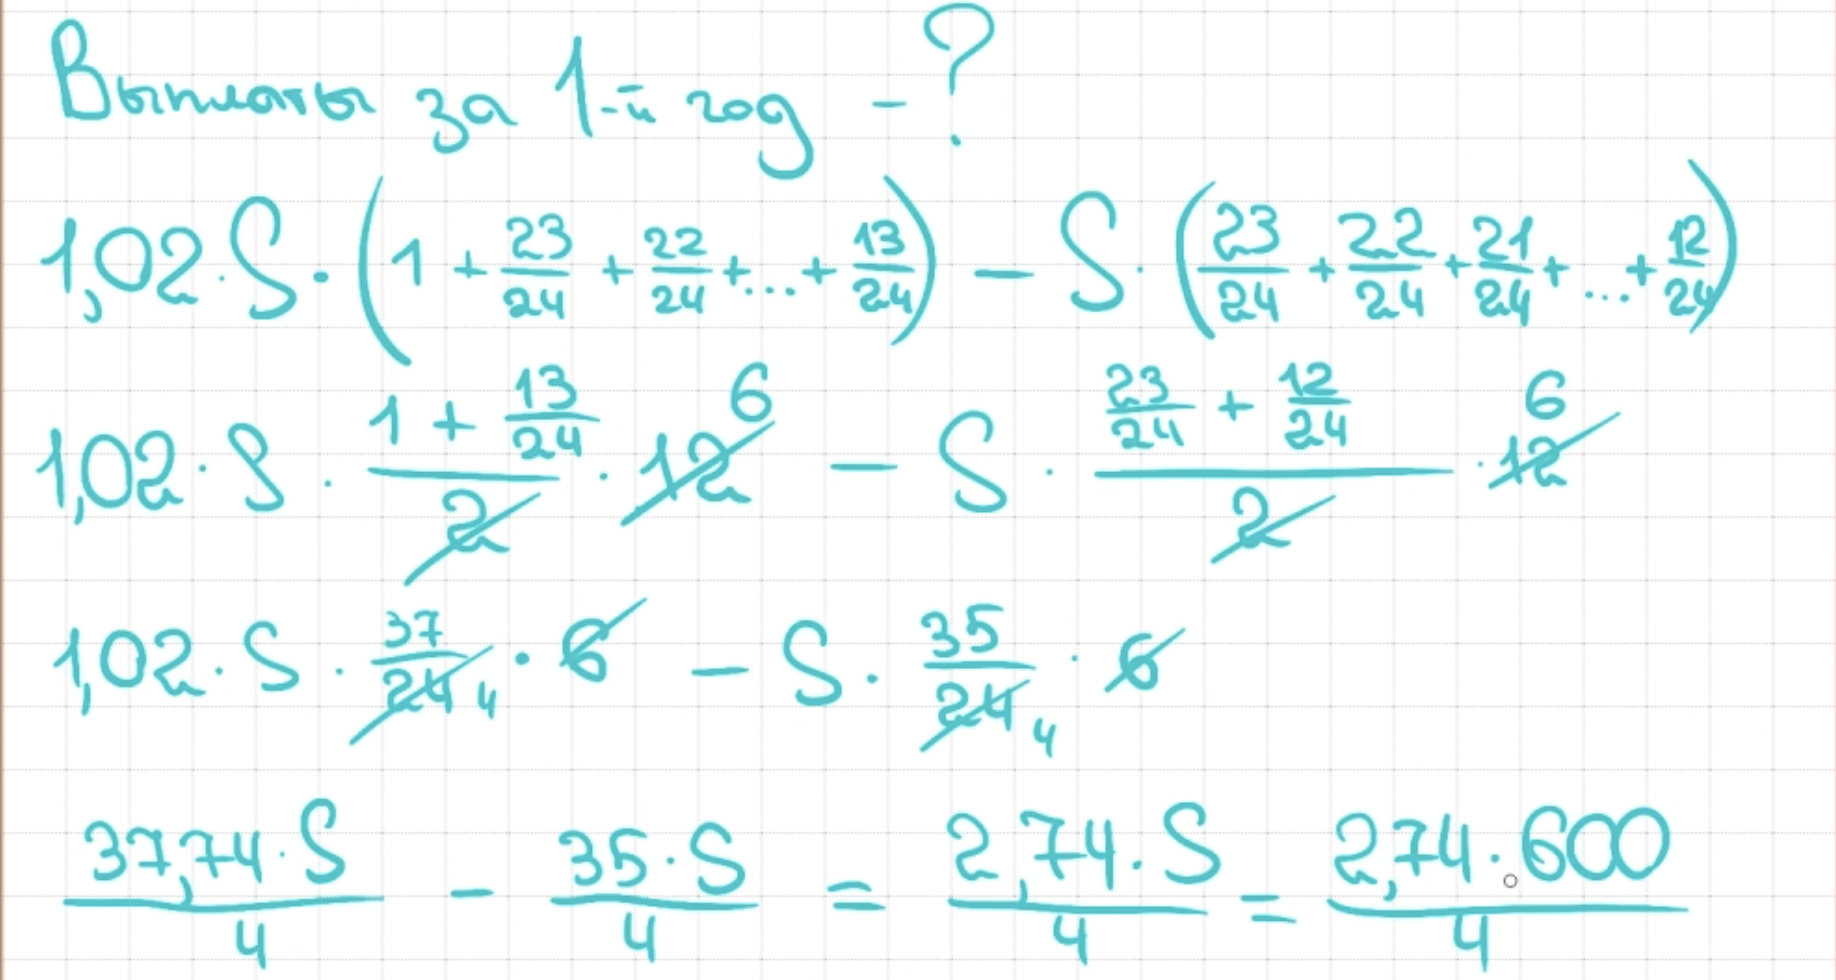 Выплаты за 1-й год - ?
1,02 · S · (1 + 23/24 + 22/24 + ... + 13/24) - S · (23/24 + 22/24 + 21/24 + ... + 12/24)
1,02 · S · (1 + 13/24)/2 · 12 6 - S · (23/24 + 12/24)/2 · 12 6
1,02 · S · 37/24 4 · 6 - S · 35/24 4 · 6
37,74 · S/4 - 35 · S/4 = 2,74 · S/4 = 2,74 · 600/4